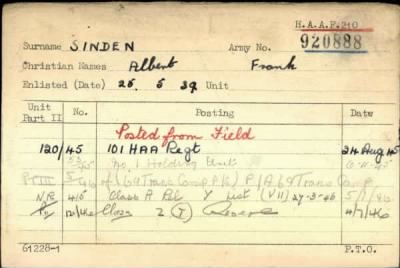 H.A.A.F. 210
Surname SINDEN Army No. 920888
Christian Names Albert Frank
Enlisted (Date) 25. 5 39 Unit
Unit Part II No. Posting Date
Posted from Field
120/45 101 HAA Regt 24 Aug 45
No. 1 Holding Unit
5/46 Trans Camp
N.R. 4/5 Class A Rel Y List (VII) 27-3-46
Class Z (T) Reserve 4/7/46
61228-1 P.T.O.